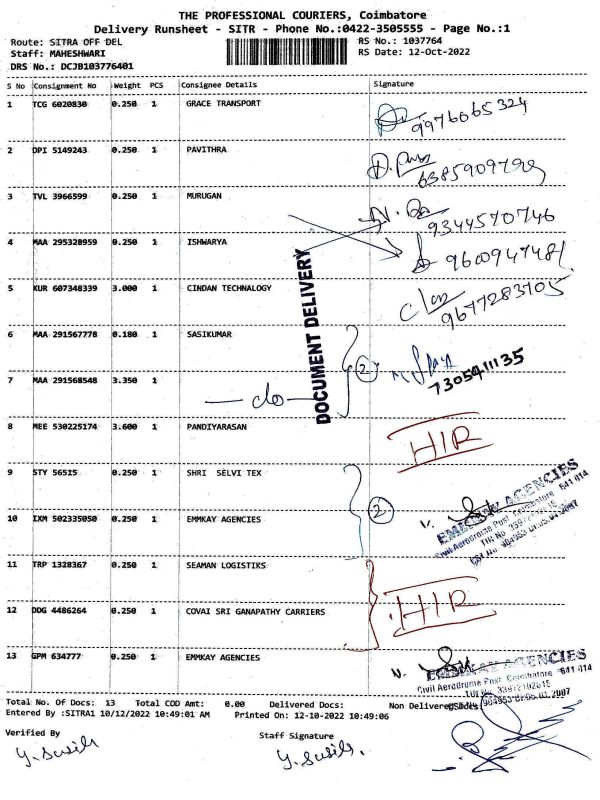 THE PROFESSIONAL COURIERS, Coimbatore
Delivery Runsheet - SITR - Phone No.:0422-3505555 - Page No.:1
Route: SITRA OFF DEL
RS No.: 1037764
Staff: MAHESHWARI
RS Date: 12-Oct-2022
DRS No.: DCJB103776401
S No Consignment No Weight PCS Consignee Details Signature
1 TCG 6020830 0.250 1 GRACE TRANSPORT
9976065324
2 DPI 5149243 0.250 1 PAVITHRA
6385909799
3 TVL 3966599 0.250 1 MURUGAN
9344570746
4 MAA 295328959 0.250 1 ISHWARYA
9600947481
5 KUR 607348339 3.000 1 CINDAN TECHNALOGY
9677283705
DOCUMENT DELIVERY
6 MAA 291567778 0.180 1 SASIKUMAR
2
7305411135
7 MAA 291568548 3.350 1
do
8 MEE 530225174 3.600 1 PANDIYARASAN
HIR
9 STY 56515 0.250 1 SHRI SELVI TEX
2
10 IXM 502335050 0.250 1 EMMKAY AGENCIES
EMMKAY AGENCIES
Civil Aerodrome Post, Coimbatore 641 014
11 TRP 1328367 0.250 1 SEAMAN LOGISTIKS
12 DDG 4486264 0.250 1 COVAI SRI GANAPATHY CARRIERS
HIR
13 GPM 634777 0.250 1 EMMKAY AGENCIES
EMMKAY AGENCIES
Civil Aerodrome Post, Coimbatore 641 014
Total No. Of Docs: 13 Total COD Amt: 0.00 Delivered Docs: Non Delivered
Entered By :SITRA1 10/12/2022 10:49:01 AM Printed On: 12-10-2022 10:49:06
Verified By
Staff Signature
Y. Susils
Y. Susils.